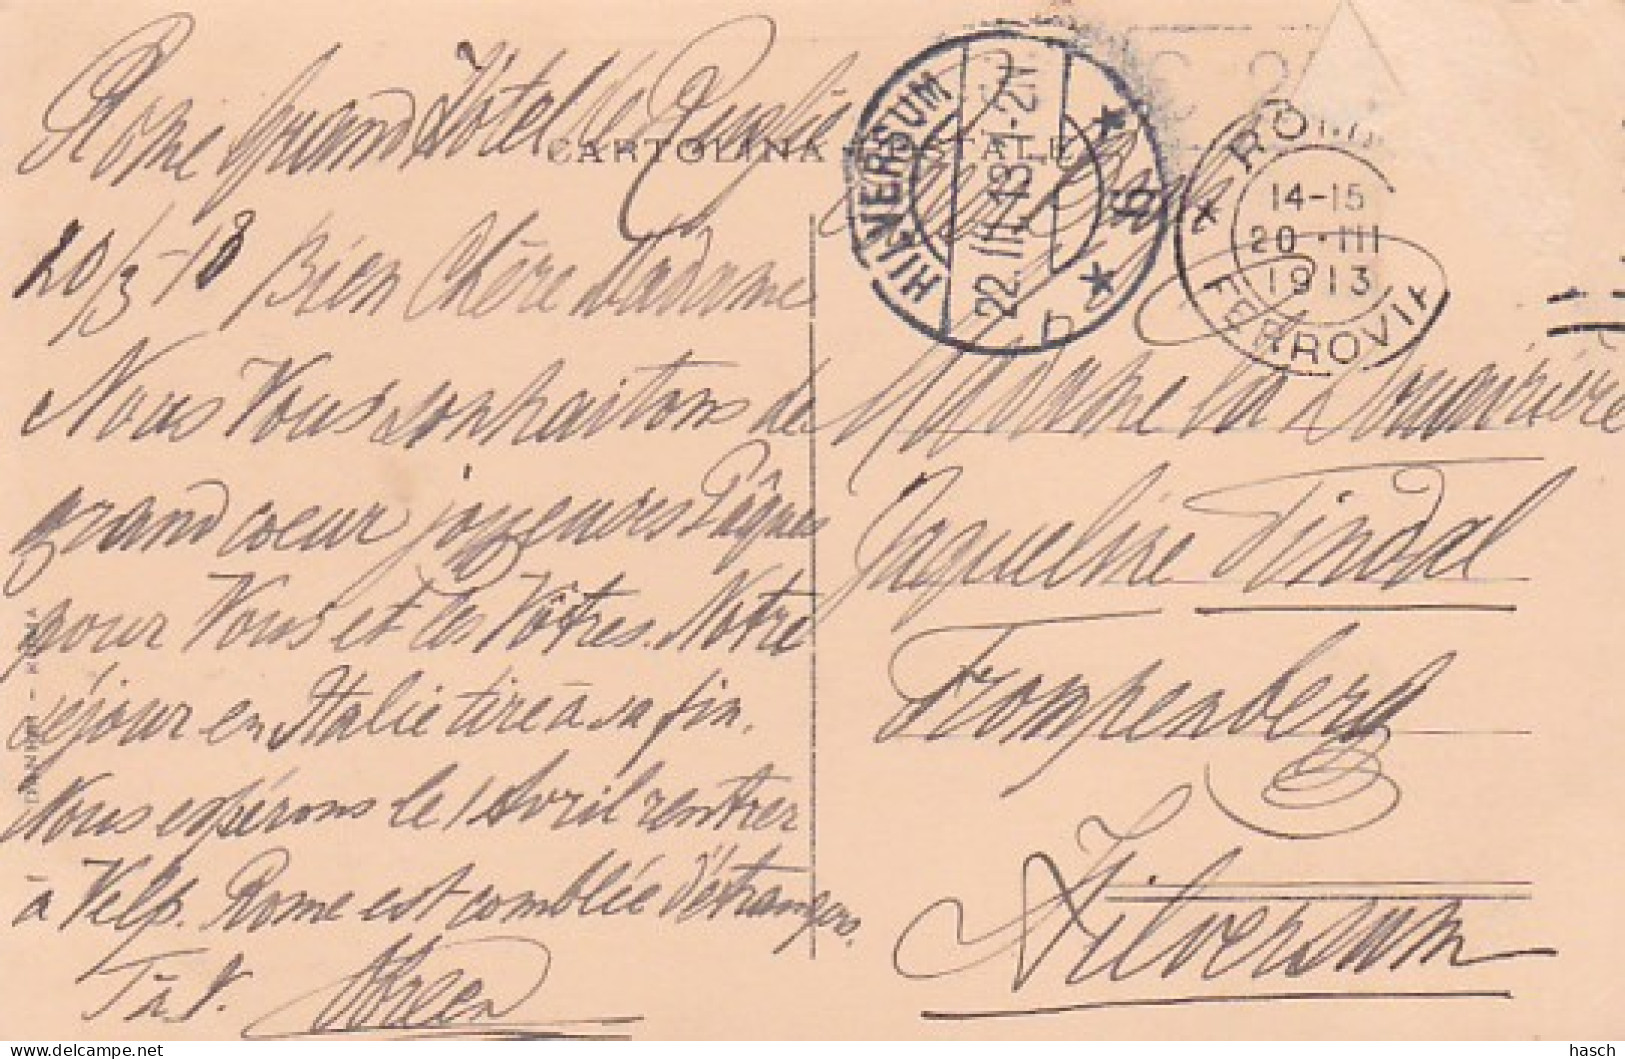 Rome Grand Hôtel de Russie
CARTOLINA POSTALE
20/3-13 Bien Chère Madame
Nous Vous souhaitons de
grand coeur joyeuses Pâques
pour Vous et les Vôtres. Notre
séjour en Italie tire à sa fin.
Nous espérons le 1 Avril rentrer
à Velp. Rome est comblée d'étrangers.
HILVERSUM
22.III.13.1-2N
ROMA
14-15
20·III
1913
FERROVIA
Madame la Douairière
Jaqueline Tindal
Trompenberg
Hilversum
- ROMA
delcampe.net
hasch